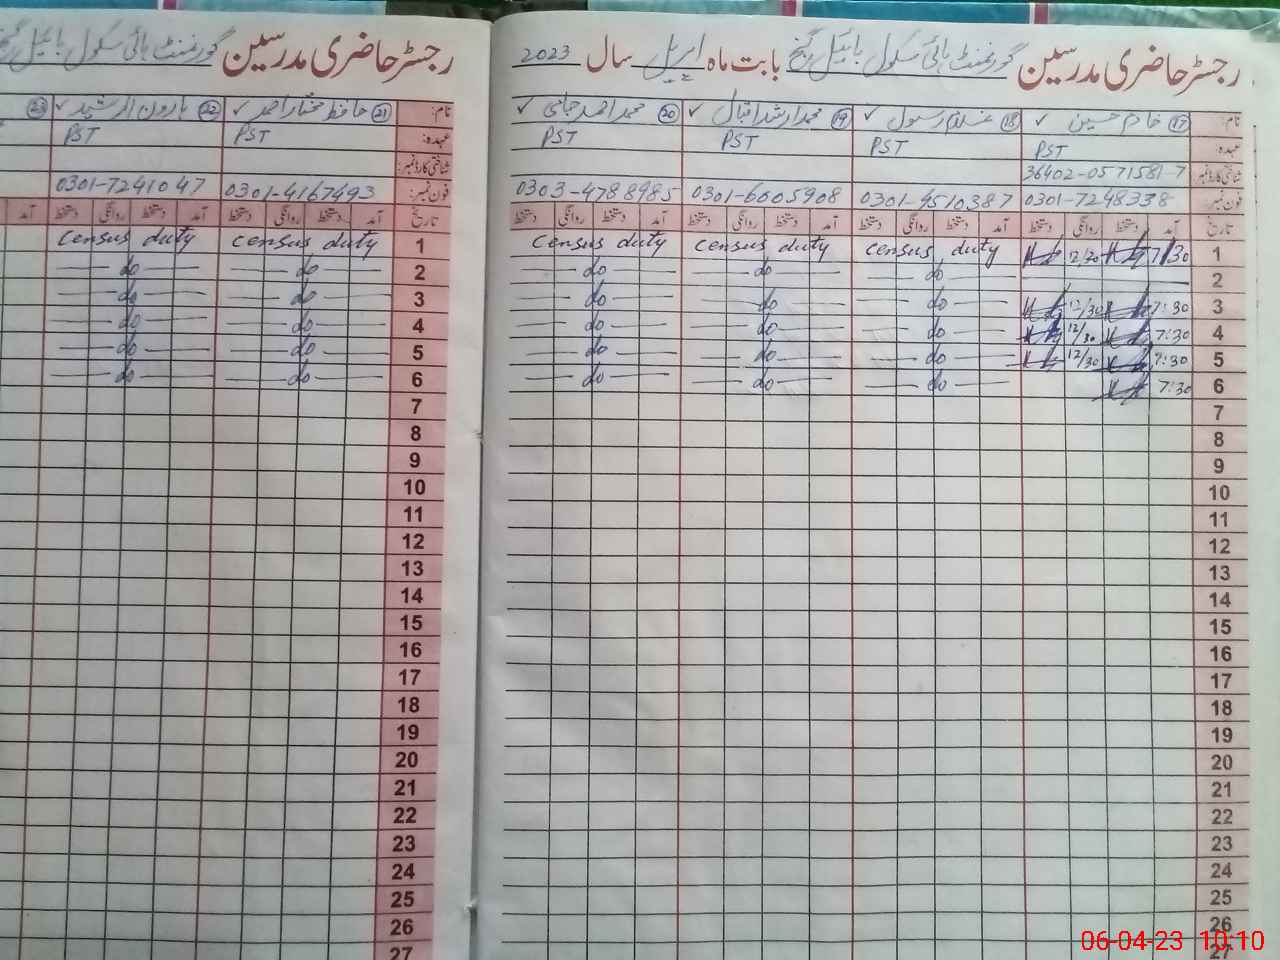 رجسٹر حاضری مدرسین گورنمنٹ ہائی سکول بابت ماہ اپریل سال 2023
نام: (17) خادم حسین ✓ (18) غلام رسول ✓ (19) محمد ارشد اقبال ✓ (20) محمد احمد ✓
عہدہ: PST PST PST PST
شناختی کارڈ نمبر: 36402-0571581-7
فون نمبر: 0301-7248338 0301-9510387 0301-6005908 0303-4788985
تاریخ آمد دستخط روانگی دستخط آمد دستخط روانگی دستخط آمد دستخط روانگی دستخط آمد دستخط روانگی دستخط
1 7:30 12/20 census duty census duty census duty
2 do do do
3 7:30 12/30 do do do
4 7:30 12/30 do do do
5 7:30 12/30 do do do
6 7:30 do do do
7
8
9
10
11
12
13
14
15
16
17
18
19
20
21
22
23
24
25
26
27
رجسٹر حاضری مدرسین گورنمنٹ ہائی سکول
نام: (21) حافظ مختار احمد ✓ (22) ہارون الرشید ✓ (23)
عہدہ: PST PST
شناختی کارڈ نمبر:
فون نمبر: 0301-4167493 0301-7241047
تاریخ آمد دستخط روانگی دستخط آمد دستخط روانگی دستخط آمد
1 census duty census duty
2 do do
3 do do
4 do do
5 do do
6 do do
7
8
9
10
11
12
13
14
15
16
17
18
19
20
21
22
23
24
25
26
27
06-04-23 10:10